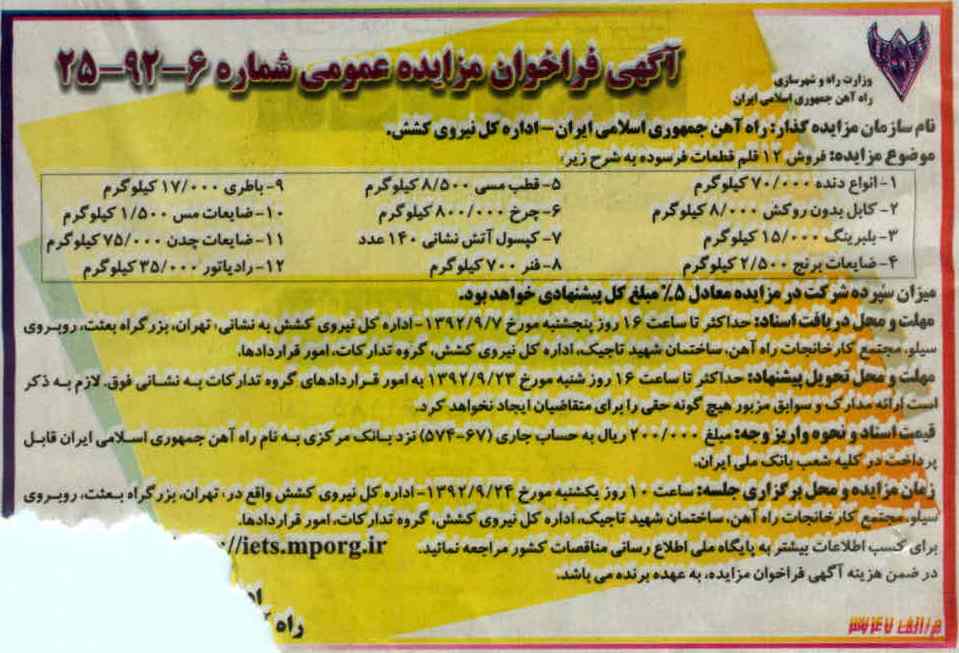 آگهی فراخوان مزایده عمومی شماره ۶-۹۲-۲۵
وزارت راه و شهرسازی
راه آهن جمهوری اسلامی ایران
نام سازمان مزایده گذار: راه آهن جمهوری اسلامی ایران-اداره کل نیروی کشش.
موضوع مزایده: فروش ۱۲ قلم قطعات فرسوده به شرح زیر:
۱- انواع دنده ۷۰/۰۰۰ کیلوگرم
۲- کابل بدون روکش ۸/۰۰۰ کیلوگرم
۳- بلبرینگ ۱۵/۰۰۰ کیلوگرم
۴- ضایعات برنج ۲/۵۰۰ کیلوگرم
۵- قطب مسی ۸/۵۰۰ کیلوگرم
۶- چرخ ۸۰۰/۰۰۰ کیلوگرم
۷- کپسول آتش نشانی ۱۴۰ عدد
۸- فنر ۷۰۰ کیلوگرم
۹- باطری ۱۷/۰۰۰ کیلوگرم
۱۰- ضایعات مس ۱/۵۰۰ کیلوگرم
۱۱- ضایعات چدن ۷۵/۰۰۰ کیلوگرم
۱۲- رادیاتور ۳۵/۰۰۰ کیلوگرم
میزان سپرده شرکت در مزایده معادل ۵٪ مبلغ کل پیشنهادی خواهد بود.
مهلت و محل دریافت اسناد: حداکثر تا ساعت ۱۶ روز پنجشنبه مورخ ۱۳۹۲/۹/۷-اداره کل نیروی کشش به نشانی: تهران، بزرگراه بعثت، روبروی
سیلو، مجتمع کارخانجات راه آهن، ساختمان شهید تاجیک، اداره کل نیروی کشش، گروه تدارکات، امور قراردادها.
مهلت و محل تحویل پیشنهاد: حداکثر تا ساعت ۱۶ روز شنبه مورخ ۱۳۹۲/۹/۲۳ به امور قراردادهای گروه تدارکات به نشانی فوق. لازم به ذکر
است ارائه مدارک و سوابق مزبور هیچ گونه حقی را برای متقاضیان ایجاد نخواهد کرد.
قیمت اسناد و نحوه واریز وجه: مبلغ ۲۰۰/۰۰۰ ریال به حساب جاری (۶۷-۵۷۴) نزد بانک مرکزی به نام راه آهن جمهوری اسلامی ایران قابل
پرداخت در کلیه شعب بانک ملی ایران.
زمان مزایده و محل برگزاری جلسه: ساعت ۱۰ روز یکشنبه مورخ ۱۳۹۲/۹/۲۴-اداره کل نیروی کشش واقع در: تهران، بزرگراه بعثت، روبروی
سیلو، مجتمع کارخانجات راه آهن، ساختمان شهید تاجیک، اداره کل نیروی کشش، گروه تدارکات، امور قراردادها.
برای کسب اطلاعات بیشتر به پایگاه ملی اطلاع رسانی مناقصات کشور مراجعه نمائید. //iets.mporg.ir
در ضمن هزینه آگهی فراخوان مزایده، به عهده برنده می باشد.
راه
م/الف ۳۷۴۷